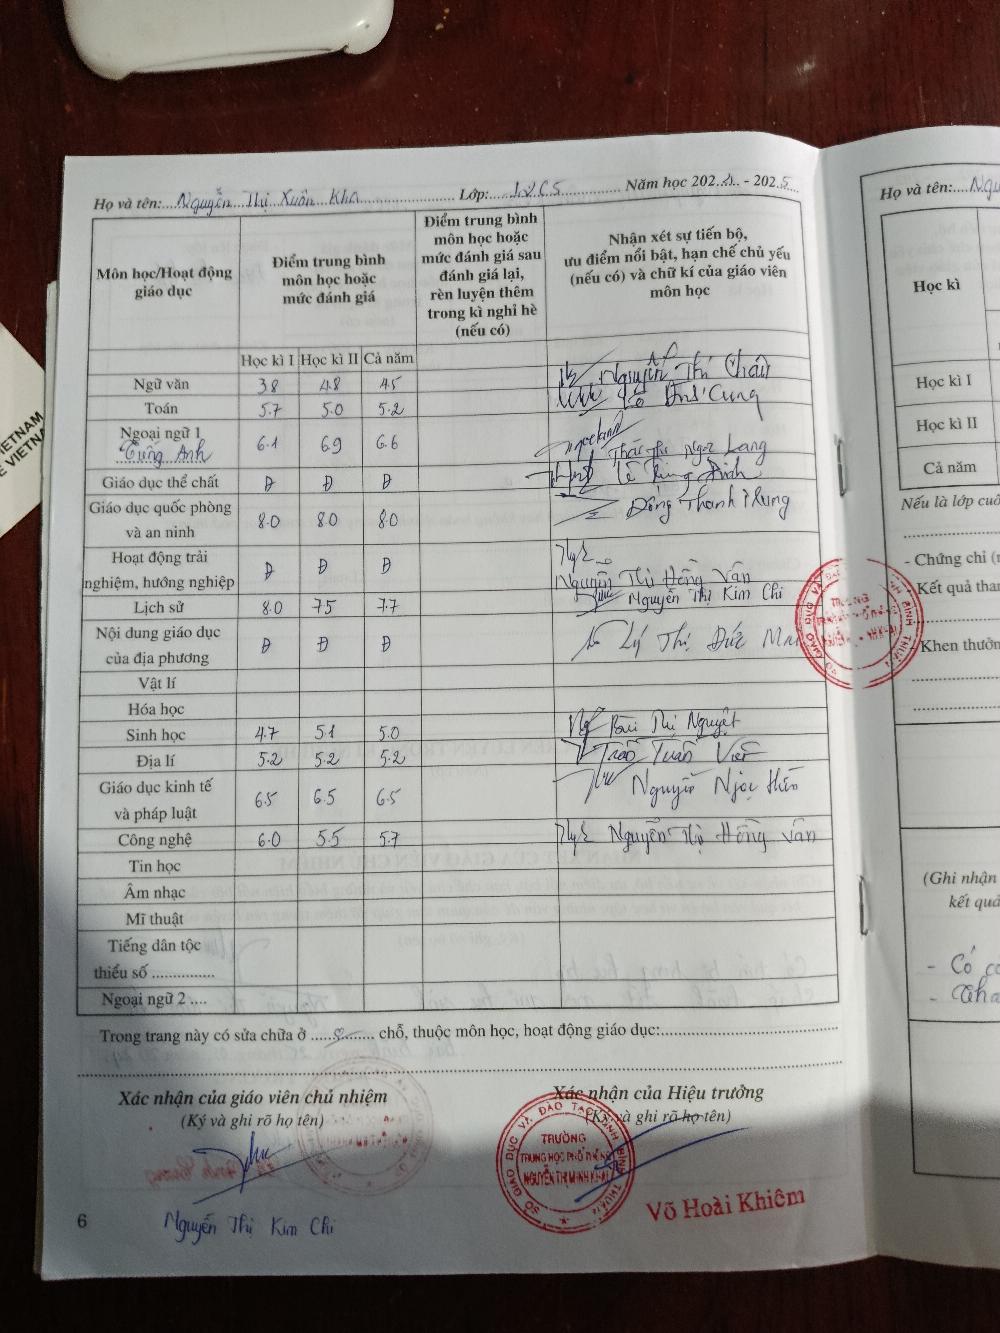 Họ và tên:....Nguyễn Thị Xuân Kha.................... Lớp:....12C5............... Năm học 2024.. - 2025
Môn học/Hoạt động giáo dục
Điểm trung bình môn học hoặc mức đánh giá
Điểm trung bình môn học hoặc mức đánh giá sau đánh giá lại, rèn luyện thêm trong kì nghỉ hè (nếu có)
Nhận xét sự tiến bộ, ưu điểm nổi bật, hạn chế chủ yếu (nếu có) và chữ kí của giáo viên môn học
Học kì I Học kì II Cả năm
Ngữ văn 3.8 4.8 4.5 Nguyễn Thị Châu
Toán 5.7 5.0 5.2 Cung
Ngoại ngữ 1 Tiếng Anh 6.1 6.9 6.6 Thái Thị Ngọc Lang
Giáo dục thể chất Đ Đ Đ Lê Định
Giáo dục quốc phòng và an ninh 8.0 8.0 8.0 Đặng Thanh
Hoạt động trải nghiệm, hướng nghiệp Đ Đ Đ Nguyễn Thị Hồng Vân
Lịch sử 8.0 7.5 7.7 Nguyễn Thị Kim Chi
Nội dung giáo dục của địa phương Đ Đ Đ Lý Thị Đức Mai
Vật lí
Hóa học
Sinh học 4.7 5.1 5.0 Bùi Thị Nguyệt
Địa lí 5.2 5.2 5.2 Trần Tuấn Việt
Giáo dục kinh tế và pháp luật 6.5 6.5 6.5 Nguyễn Ngọc Hiếu
Công nghệ 6.0 5.5 5.7 Nguyễn Thị Hồng Vân
Tin học
Âm nhạc
Mĩ thuật
Tiếng dân tộc thiểu số ...............
Ngoại ngữ 2 ....
Trong trang này có sửa chữa ở ............. chỗ, thuộc môn học, hoạt động giáo dục:
Xác nhận của giáo viên chủ nhiệm
(Ký và ghi rõ họ tên)
Nguyễn Thị Kim Chi
Xác nhận của Hiệu trưởng
(Ký và ghi rõ họ tên)
SỞ GIÁO DỤC VÀ ĐÀO TẠO TỈNH BÌNH THUẬN
TRƯỜNG
TRUNG HỌC PHỔ THÔNG
NGUYỄN THỊ MINH KHAI
Võ Hoài Khiêm
6
Họ và tên:
Học kì
Học kì I
Học kì II
Cả năm
Nếu là lớp
- Chứng chỉ
Kết quả
- Khen
(Ghi nhận
kết quả
- Có
VIETNAM